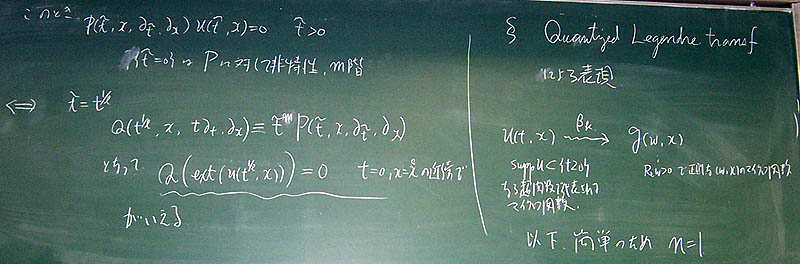 このとき P(t̃, x, ∂t̃, ∂x) u(t̃, x) = 0  t̃ > 0
{t̃=0} は Pに対して非特性, m階
⇔ t̃ = t^{1/2}
Q(t^{1/2}, x, t∂t, ∂x) ≡ t̃^m P(t̃, x, ∂t̃, ∂x)
とおって Q(ext(u(t^{1/2}, x))) = 0  t=0, x=x̊ の近傍で
がいえる
§ Quantized Legendre transf
による表現
u(t, x) ⇝ g(w, x)
supp u ⊂ {t≥0}
Re w>0 で正則な (w, x) のマイクロ関数
なる超関数で代表されて
マイクロ関数.
以下、簡単のため n=1